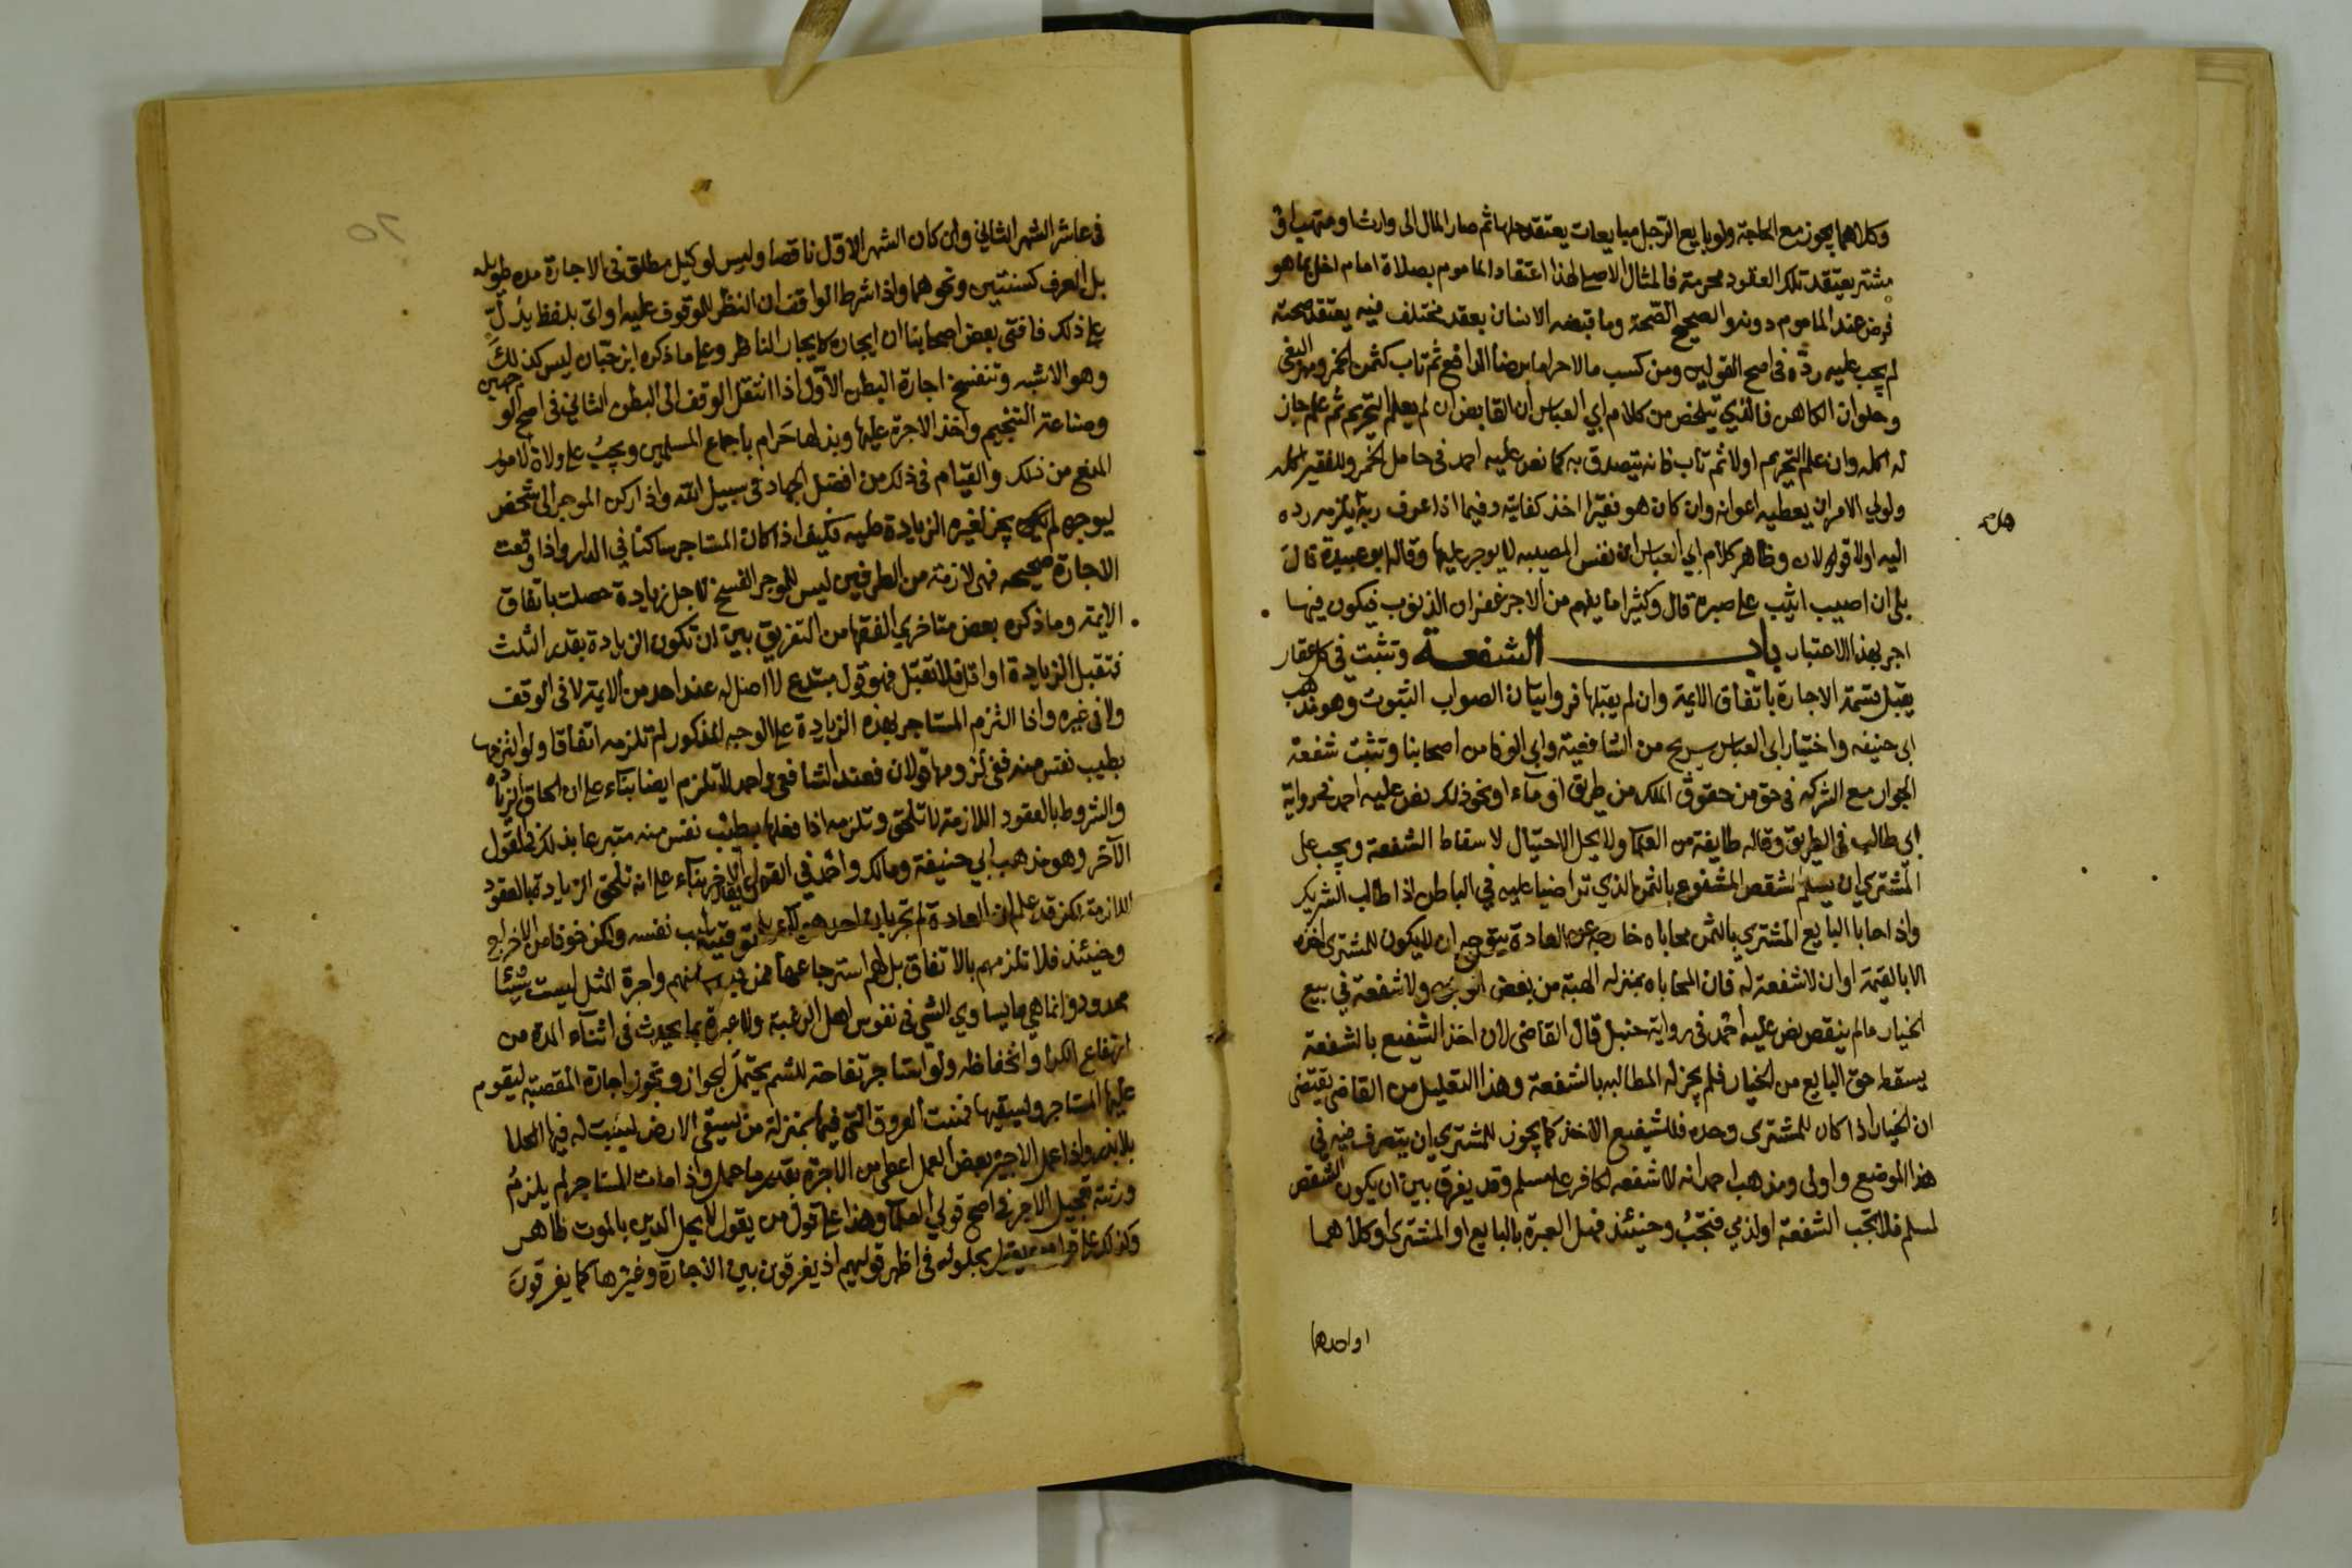 وكلاهما يجوز مع الحاجة ولو بايع الرجل مبايعات يعتقد حلها ثم صار المال الى وارث او متهب او
مشتر يعتقد تلك العقود محرمة فالمثال الاصلي لهذا اعتقاد الماموم بصلاة امام اخل بما هو
فرض عند الماموم دونه والصحيح الصحة وما قبضه الانسان بعقد مختلف فيه يعتقد صحته
لم يجب عليه رده في اصح القولين ومن كسب مالا حراما برضا الدافع ثم تاب كثمن الخمر ومهر البغي
وحلوان الكاهن فالذي يتلخص من كلام ابي العباس ان القابض ان لم يعلم التحريم ثم علم جاز
له اكله وان علم التحريم اولا ثم تاب فانه يتصدق به كما نص عليه احمد في حامل الخمر وللفقير اكله
ولولي الامر ان يعطيه اعوانه وان كان هو فقيرا اخذ كفايته وفيما اذا عرف ربه يلزمه رده
اليه اولا قولان وظاهر كلام ابي العباس ان نفس المصيبة لا يوجر عليها وقاله ابو عبيدة قال
بلى ان اصيب اثيب على صبره قال وكثيرا ما يفهم من الاجر غفران الذنوب فيكون فيها
اجر بهذا الاعتبار باب الشفعة وتثبت في كل عقار
يقبل قسمة الاجارة باتفاق الايمة وان لم يقبلها فروايتان الصواب الثبوت وهو مذهب
ابي حنيفه واختيار ابي العباس سريج من الشافعية وابي الوفا من اصحابنا وتثبت شفعة
الجوار مع الشركه في حق من حقوق الملك من طريق او مآء او نحو ذلك نص عليه احمد في رواية
ابي طالب في الطريق وقاله طايفة من العلما ولا يحل الاحتيال لاسقاط الشفعة ويجب على
المشتري ان يسلم الشقص المشفوع بالثمن الذي تراضيا عليه في الباطن اذا طالب الشريك
واذا حابا البايع المشتري بالثمن محاباه خارجة عن العادة يتوجه ان لا يكون للمشترى اخذه
الا بالقيمة او ان لا شفعة له فان المحاباه بمنزله الهبة من بعض الوجوه ولا شفعة في بيع
الخيار مالم ينقص نص عليه احمد في رواية حنبل قال القاضي لان اخذ الشفيع بالشفعة
يسقط حق البايع من الخيار فلم يجز له المطالبه بالشفعة وهذا التعليل من القاضي يقتضي
ان الخيار اذا كان للمشترى وحده فللشفيع الاخذ كما يجوز للمشتري ان يتصرف فيه في
هذا الموضع واولى ومذهب احمد انه لا شفعه لكافر على مسلم وقد يفرق بين ان يكون الشقص
لمسلم فلا تجب الشفعة او لذمي فتجب وحينئذ فهل العبرة بالبايع او المشترى او كلاهما
او احدهما
في عاشر الشهر الثاني وان كان الشهر الاول ناقصا وليس لوكيل مطلق في الاجارة مده طويله
بل العرف كسنتين ونحوهما واذا شرط الواقف ان النظر للموقوف عليه او اتى بلفظ يدل
على ذلك فافتى بعض اصحابنا ان ايجاره كايجار الناظر وعلى ما ذكره ابن حبان ليس كذلك
وهو الاشبه وتنفسخ اجارة البطن الاول اذا انتقل الوقف الى البطن الثاني في اصح الوجهين
وصناعة التنجيم واخذ الاجرة عليها وبذلها حرام باجماع المسلمين ويجب على ولاة الامور
المنع من ذلك والقيام في ذلك من افضل الجهاد في سبيل الله واذا ركن الموجر الى شخص
ليوجره لم يجز لغيره الزيادة عليه فكيف اذا كان المستاجر ساكنا في الدار واذا وقعت
الاجارة صحيحه فهي لازمة من الطرفين ليس للموجر الفسخ لاجل زيادة حصلت باتفاق
الايمة وما ذكره بعض متاخري الفقها من التفريق بين ان تكون الزيادة بقدر الثلث
فتقبل الزيادة او اقل فلا تقبل فهو قول مبتدع لا اصل له عند احد من الايمة لا في الوقف
ولا في غيره واذا التزم المستاجر بهذه الزيادة على الوجه المذكور لم تلزمه اتفاقا ولو التزمها
بطيب نفس منه ففي لزومها قولان فعند الشافعي واحمد لا تلزم ايضا بناء على ان الحاق الزياده
والشروط بالعقود اللازمة لا تلحق وتلزمه اذا فعلها بطيب نفس منه متبرعا بذلك في القول
الاخر وهو مذهب ابي حنيفة ومالك واحمد في القول الاخر بناء على انه تلحق الزيادة بالعقود
اللازمة لكن قد علم ان العادة لم تجر بان احد هولاء بطيب نفسه ولكن خوفا من الاخراج
وحينئذ فلا تلزمهم بالاتفاق بل لهم استرجاعها ممن منهم واجرة المثل ليست شيئا
محدودا وانما هي ما يساوي الشي في نفوس اهل الرغبة ولا عبرة بما يحدث في اثنآء المدة من
ارتفاع الكرا وانخفاظه ولو استاجر تفاحة للشم يحتمل الجواز وتجوز اجارة المقصبة ليقوم
عليها المستاجر ويسقيها فتنبت العروق التي فيها بمنزلة من يسقى الارض لينبت له فيها الكلا
بلا بذر واذا عمل الاجير بعض العمل اعطي من الاجرة بقدر ما عمل واذا مات المستاجر لم يلزم
ورثته تعجيل الاجر في اصح قولي العلما وهذا على قول من يقول لا يحل الدين بالموت ظاهر
وكذلك على قول من يقول بحلوله في اظهر قوليهم اذ يفرقون بين الاجارة وغيرها كما يفرقون